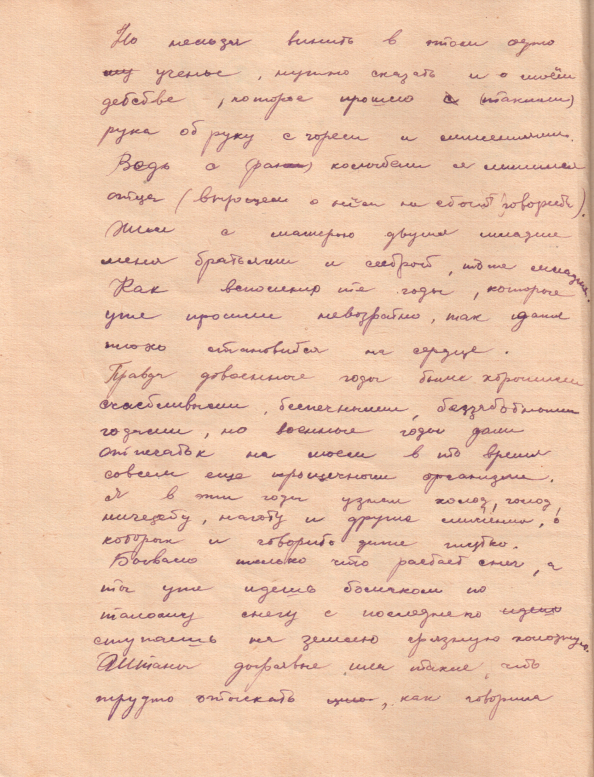 Но нельзя винить в этом одно
ученье, нужно сказать и о моём
детстве, которое прошло (такими)
рука об руку с горем и лишениями.
Ведь с колыбели я лишился
отца (впрочем о нём не стоит говорить).
Жил с матерью двумя младше
меня братьями и сестрой, тоже младшей.
Как вспомню те годы, которые
уже прошли невозратно, так даже
плохо становится на сердце.
Правда довоенные годы были хорошими
счастливыми, беспечными, беззаботными
годами, но военные годы дали
отпечаток на моем в то время
совсем еще организме.
Я в эти годы узнал холод, голод,
нищету, наготу и другие лишения, о
которых и говорить даже жутко.
Бывало только что растает снег, а
ты уже идешь босиком по
талому снегу с последнего
ступаешь на землю грязную холодную.
Штаны дырявые или такие, что
трудно отыскать, как говорили